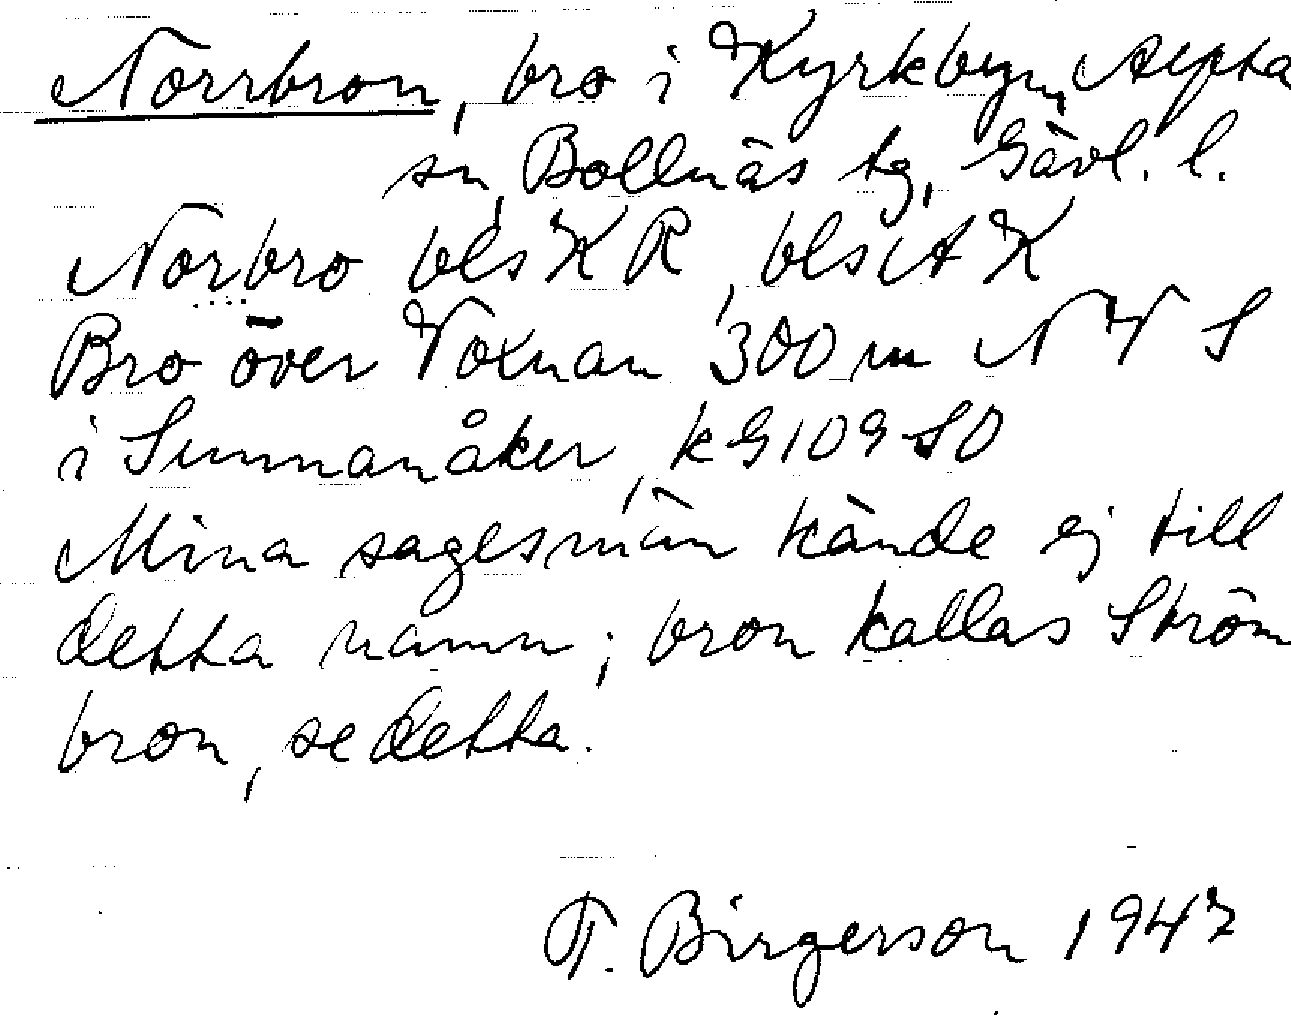 Norrbron, bro i Kyrkbyn, Alfta
sn, Bollnäs tg, Gävl. l.
Norbro bls KR, bls AK
Bro över Voxnan 300 m NV S
i Sunnanåker, k G109 SO
Mina sagesmän kände ej till
detta namn; bron kallas Ström
bron, se detta.
T. Birgerson 1947